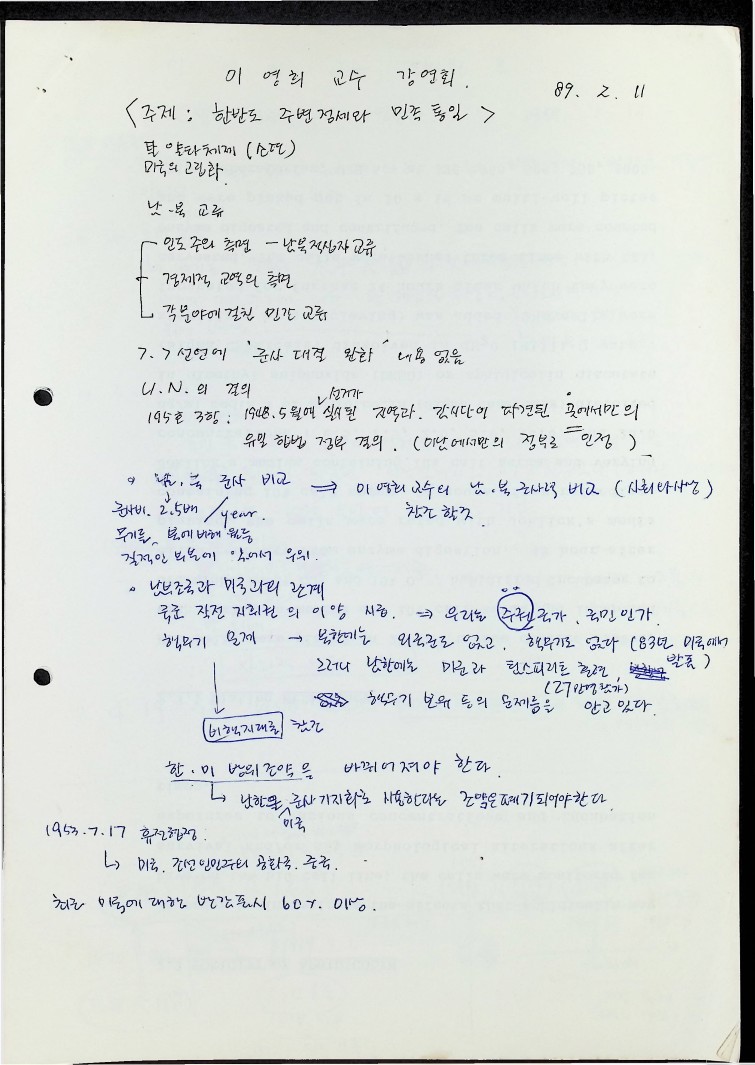 이 영희 교수 강연회.
89. 2. 11
<주제 : 한반도 주변정세와 민족 통일>
탈 얄타체제 (소련)
미국의 고립화.
남-북 교류
인도주의 측면 - 남북적십자교류
경제적 교역의 측면
각분야에 걸친 민간 교류
7.7선언에 '군사 대결 완화' 내용 없음
U.N.의 결의
195호 3항: 1948.5월에 선거가 실시된 지역과. 감시단이 파견된 곳에서만의
유일 합법 정부 결의. (이남에서만의 정부로 인정)
남.북 군사 비교 ⇒ 이영희 교수의 남.북 군사력 비교 (사회와사상)
군사비. 2.5배/year. 참조 할것.
무기를 북에 비해 월등
질적인 부분에 있어서 우위.
남부조국과 미국과의 관계
국군 작전 지휘권의 이양 시급. ⇒ 우리는 주권국가. 국민인가.
핵무기 문제 → 북한에는 외국군도 없고. 핵무기도 없다 (83년 미국에서 발표)
그러나 남한에는 미군과 팀스피리트 훈련,
(27만명참가)
핵무기 보유 등의 문제들을 안고있다.
비핵지대를
한.미 방위조약을 바뀌어져야 한다.
↳ 남한을 미국 군사기지화로 사용한다는 조약은 폐기되어야한다.
1953.7.17 휴전협정.
↳ 미국. 조선인민주의 공화국. 중국.
최근 미국에 대한 반감표시 60% 이상.